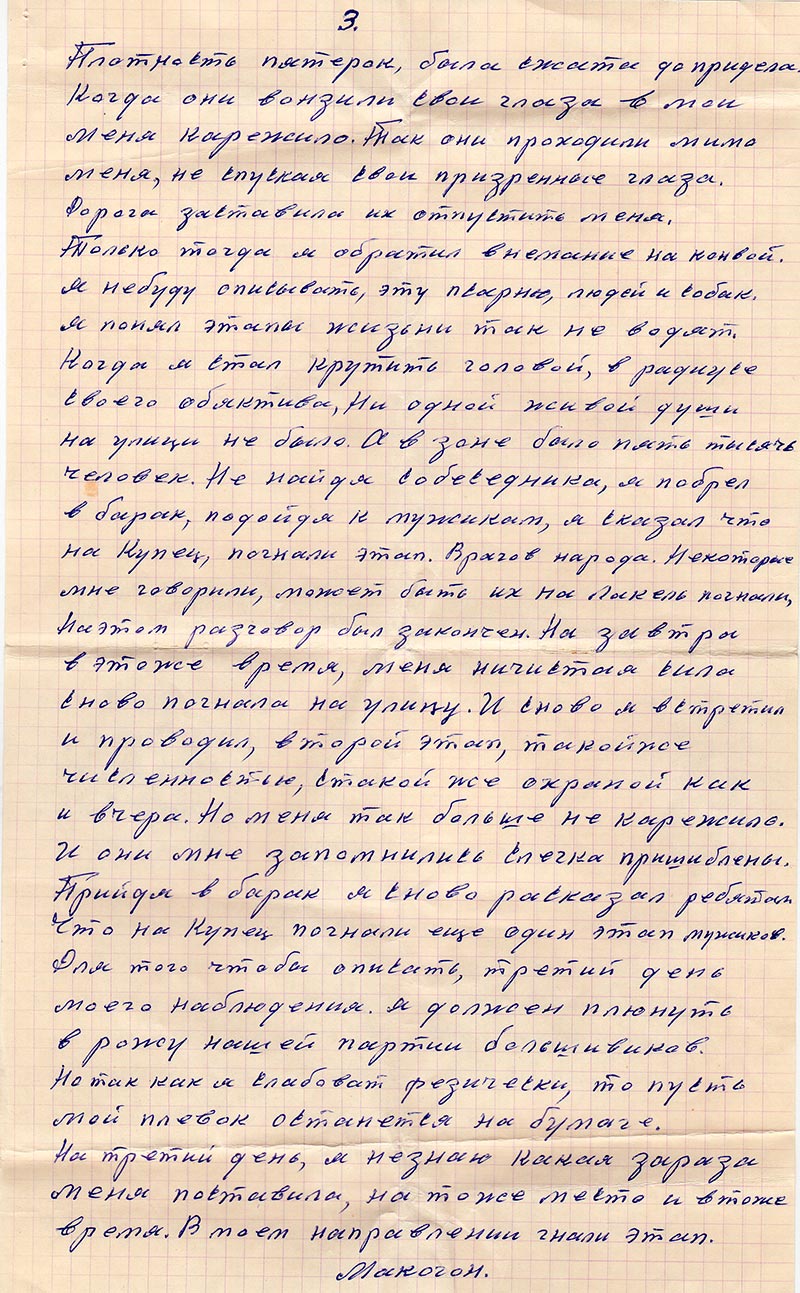 3.
Плотность пятерок, была сжата до придела.
Когда они вонзили свои глаза в мои
меня карежило. Так они проходили мимо
меня, не спуская свои призренные глаза.
Дорога заставила их отпустить меня.
Только тогда я обратил внемание на конвой.
Я небуду описывать, эту псарню, людей и собак.
Я понял этапы жизьни так не водят.
Когда я стал крутить головой, в радиусе
своего обяктива, Ни одной живой души
на улици не было. А в зоне было пять тысячь
человек. Не найдя собеседника, я побрел
в барак, подойдя к мужикам, я сказал что
на Купец, погнали этап. Врагов народа. Некоторые
мне говорили, может быть их на Лакель погнали,
Наэтом разговор был закончен. На завтра
в этоже время, меня ничистая сила
сново погнала на улицу. И сново я встретил
и проводил, второй этап, такойже
численностью, с такой же охраной как
и вчера. Но меня так больше не карежило.
И они мне запомнились слечка пришиблены.
Прийдя в барак я сново расказал ребятам
Что на Купец погнали еще один этап мужиков.
Для того чтобы описать, третий день
моего наблюдения. Я должен плюнуть
в рожу нашей партии большивиков.
Но так как я слабоват фезически, то пусть
мой плевок останется на бумаге.
На третий день, я незнаю какая зараза
меня поставила, на тоже место и в тоже
время. В моем направлении гнали этап.
Макогон.